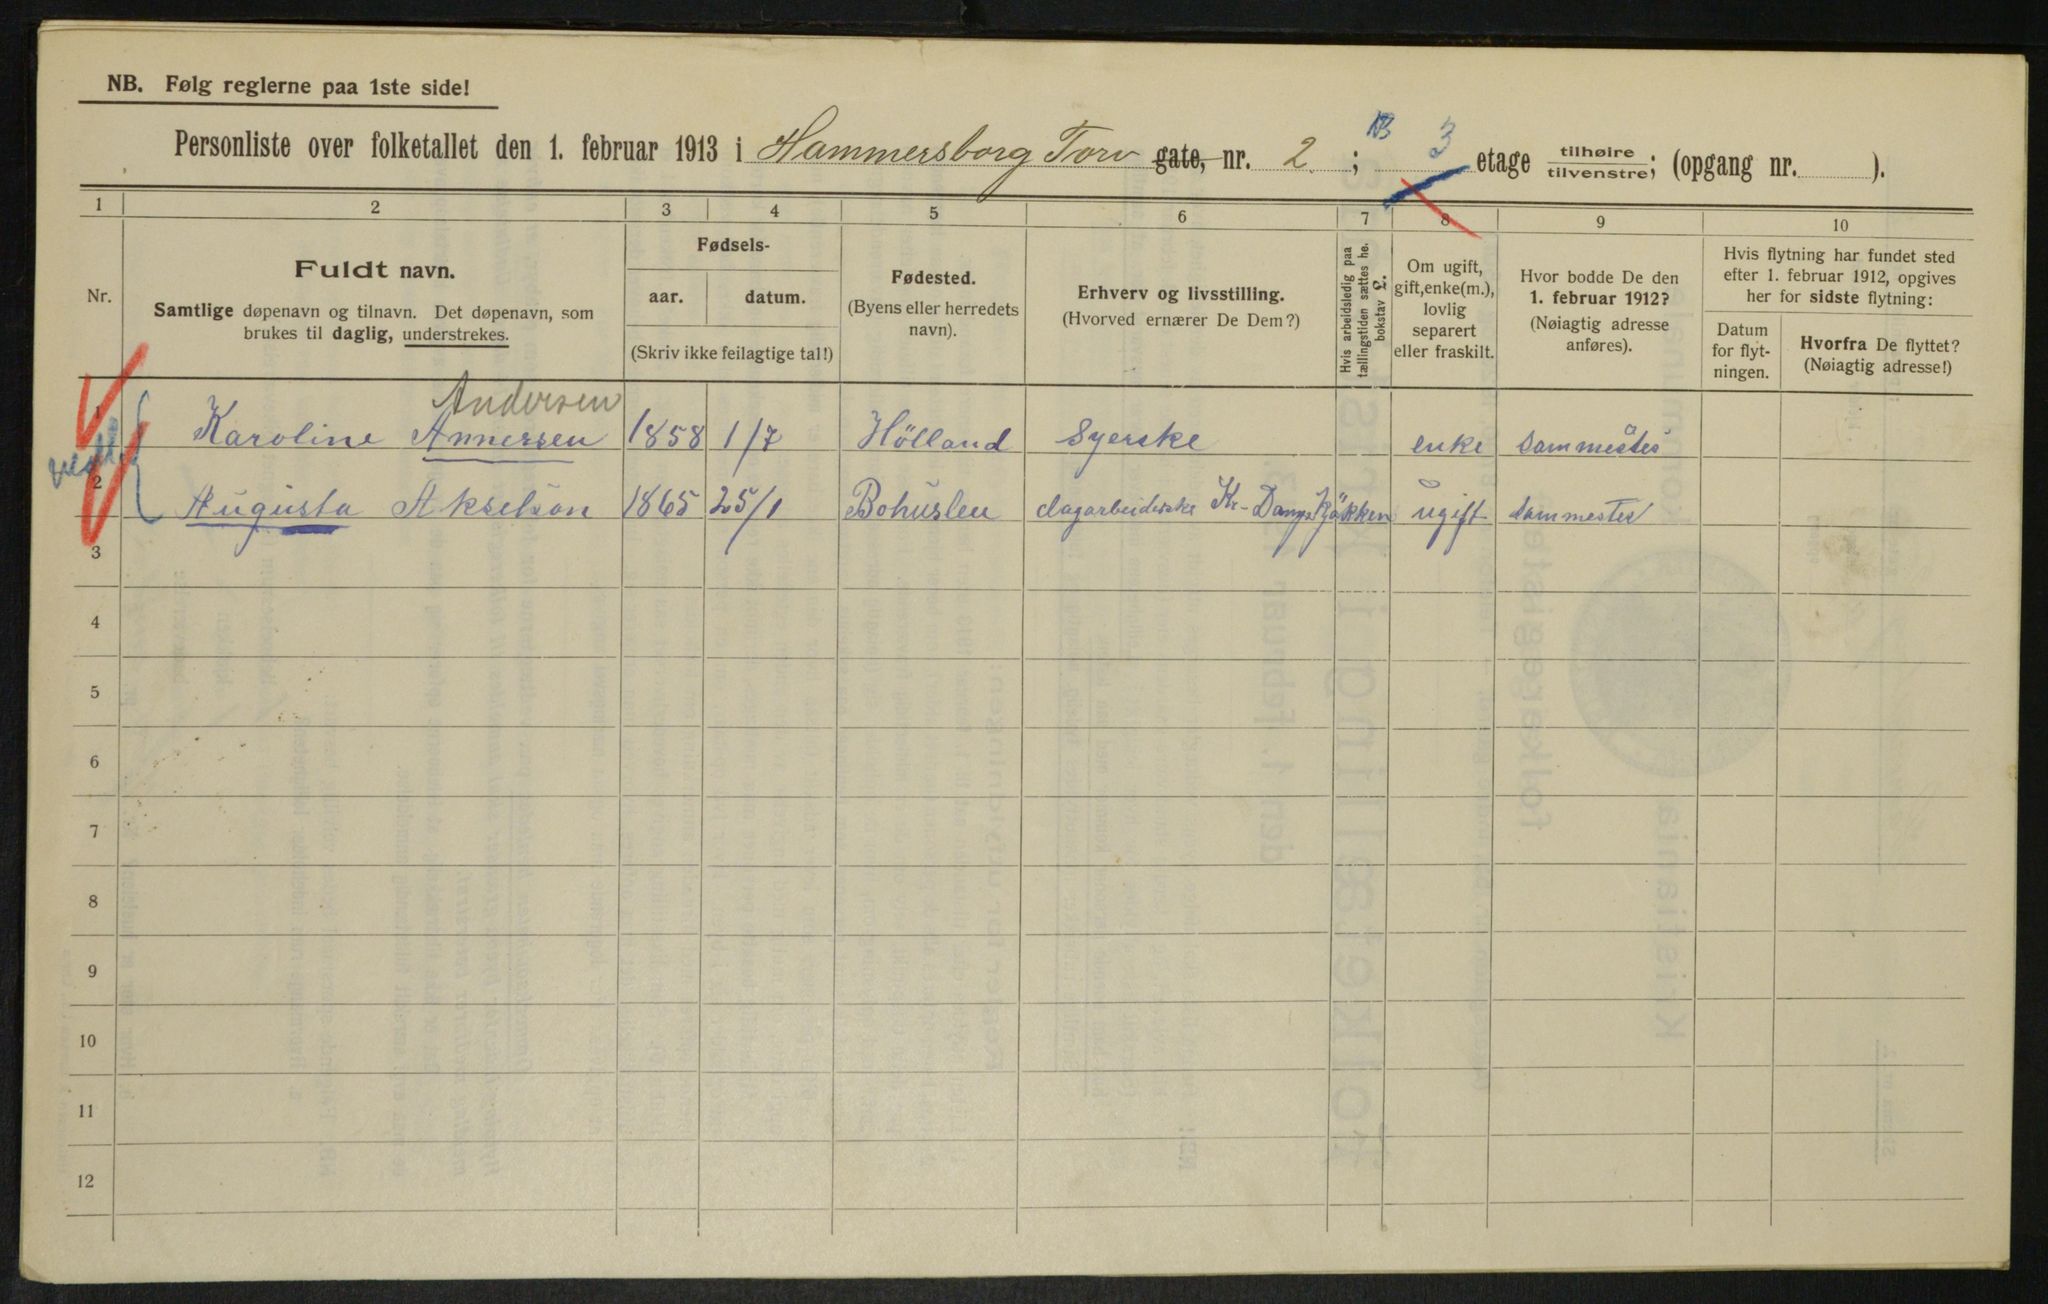 NB. Følg reglerne paa 1ste side!
Personliste over folketallet den 1. februar 1913 i Hammersborg Torv gate, nr. 2 ; NB 3 etage tilhøire/tilvenstre; (opgang nr. ).
1 2 3 4 5 6 7 8 9 10
Nr.
Fuldt navn.
Samtlige døpenavn og tilnavn. Det døpenavn, som
brukes til daglig, understrekes.
Fødsels-
aar. datum.
(Skriv ikke feilagtige tal!)
Fødested.
(Byens eller herredets
navn).
Erhverv og livsstilling.
(Hvorved ernærer De Dem?)
Hvis arbeidsledig paa
tællingstiden sættes her
bokstav L.
Om ugift,
gift, enke(m.),
lovlig
separert
eller fraskilt.
Hvor bodde De den
1. februar 1912?
(Nøiagtig adresse
anføres).
Hvis flytning har fundet sted
efter 1. februar 1912, opgives
her for sidste flytning:
Datum
for flyt-
ningen.
Hvorfra De flyttet?
(Nøiagtig adresse!)
Andersen
1 Karoline Annersen 1858 1/7 Hölland Syerske enke Sammestes
2 Augusta Akselson 1865 25/1 Bohuslen dagarbeiderske Kr- Damp Kjökken ugift sammestes
3
4
5
6
7
8
9
10
11
12